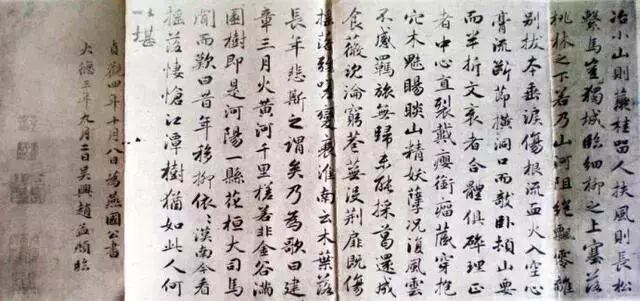 冶小山則藂桂留人扶風則長松
繫馬豈獨城臨細柳之上塞落
桃林之下若乃山河阻絕飄零離
別拔本垂淚傷根流血火入空心
膏流斷節橫洞口而敧卧頓山要
而半折文衺者合體俱碎理正
者中心直裂戴癭銜瘤藏穿抱
穴木魅睗睒山精妖孽況復風雲
不感羈旅無歸未能採葛還成
食薇沉淪窮巷蕪沒荊扉既傷
搖落彌嗟變衰淮南云木葉落
長年悲斯之謂矣乃為歌曰建
章三月火黃河千里槎若非金谷滿
園樹即是河陽一縣花桓大司馬
聞而歎曰昔年移柳依〻漢南今看
搖落悽愴江潭樹猶如此人何
以堪
貞觀四年十月八日為燕國公書
大德三年九月二日吳興趙孟頫臨